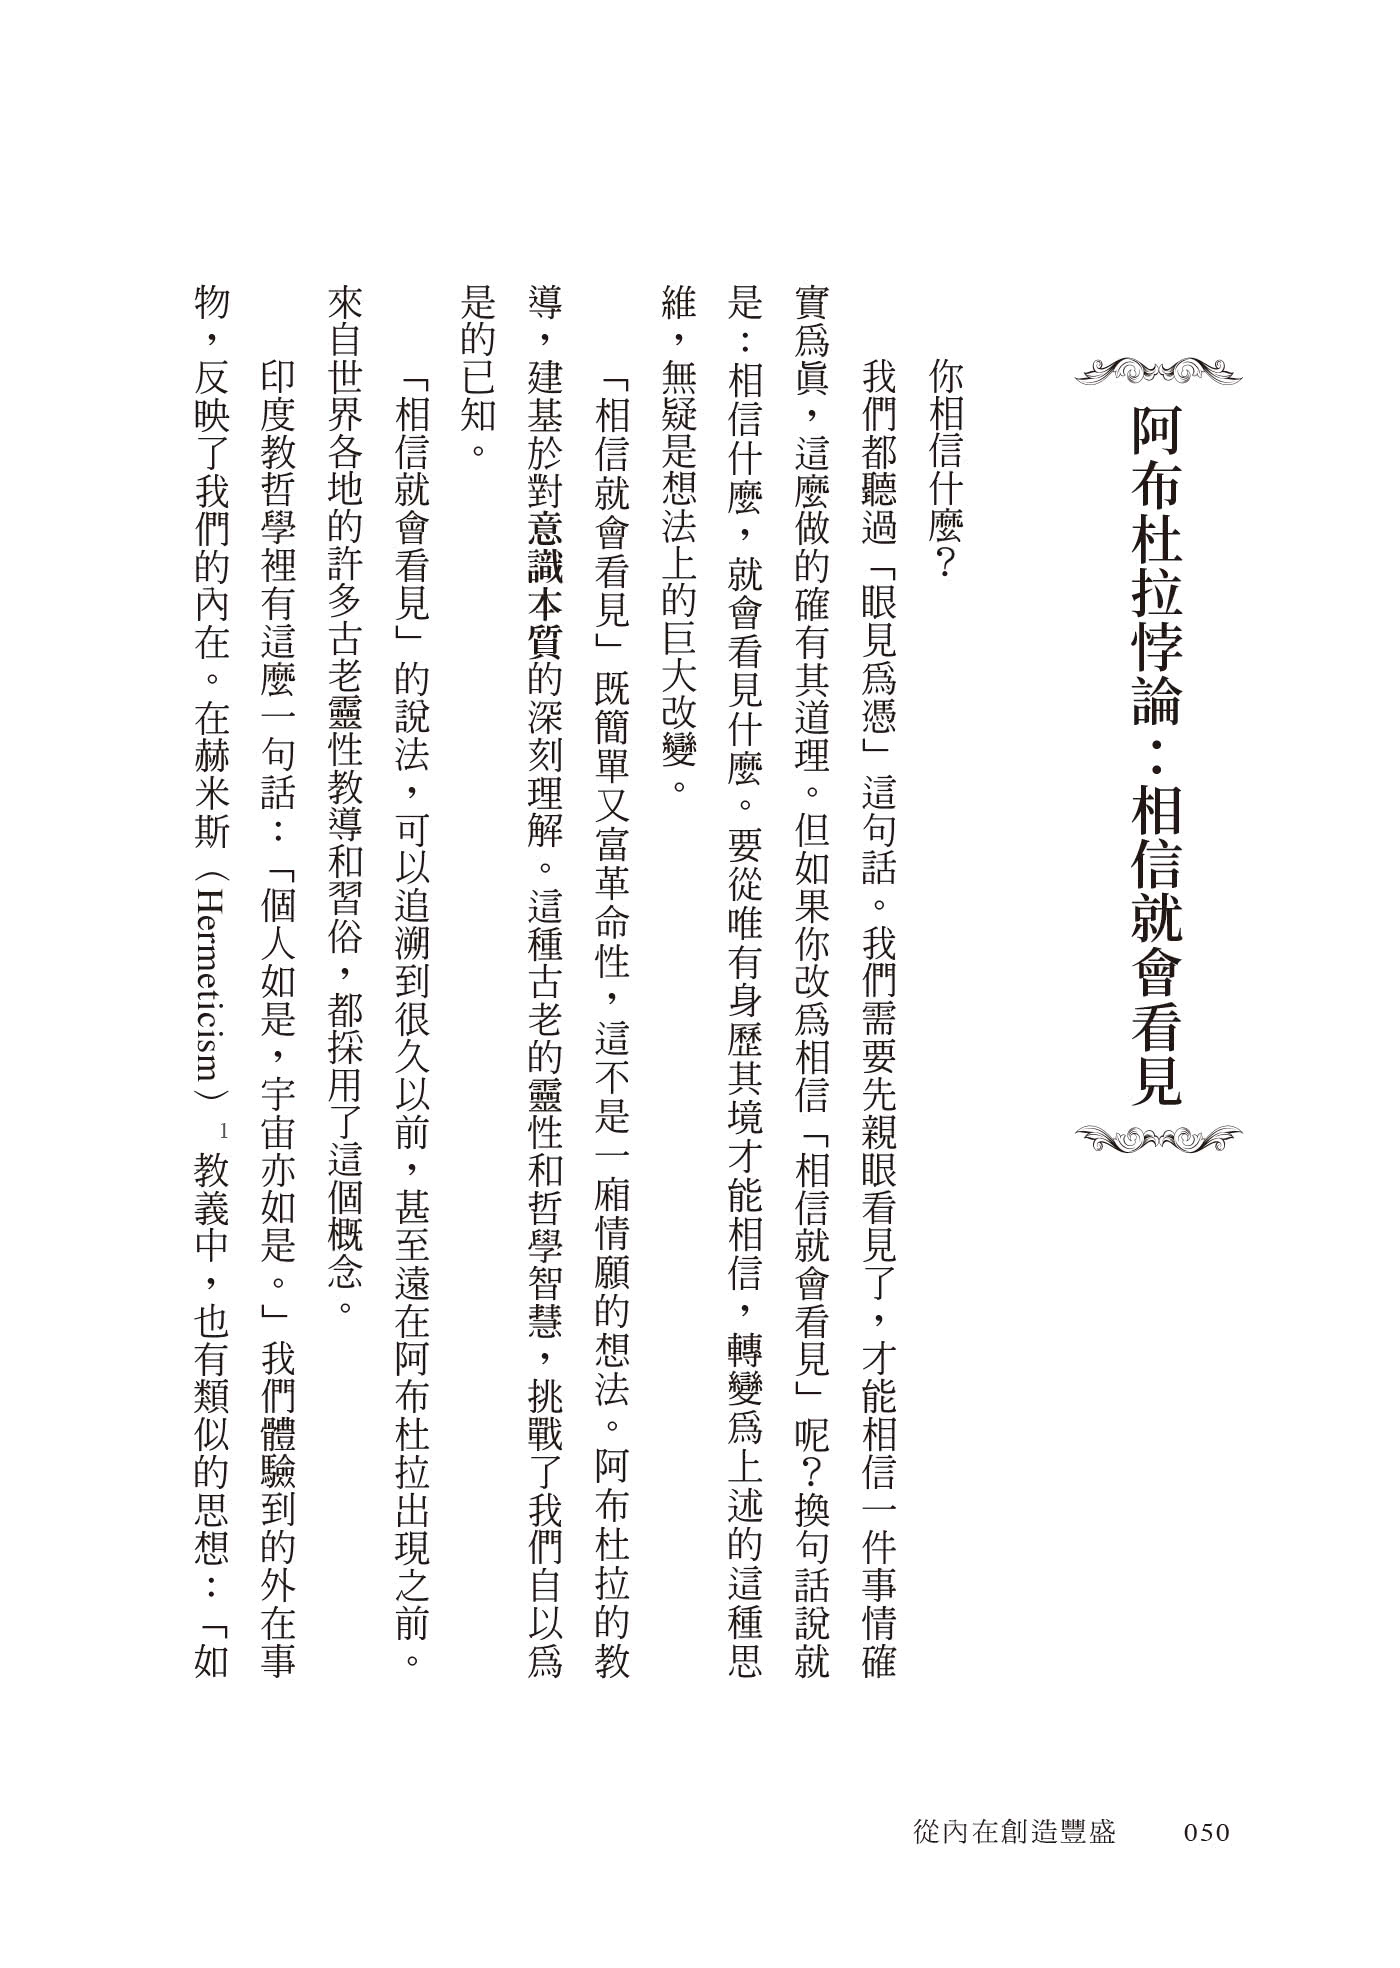 阿布杜拉悖論：相信就會看見
你相信什麼？
我們都聽過「眼見爲憑」這句話。我們需要先親眼看見了，才能相信一件事情確
實爲眞，這麼做的確有其道理。但如果你改爲相信「相信就會看見」呢？換句話說就
是：相信什麼，就會看見什麼。要從唯有身歷其境才能相信，轉變爲上述的這種思
維，無疑是想法上的巨大改變。
「相信就會看見」既簡單又富革命性，這不是一廂情願的想法。阿布杜拉的教
導，建基於對意識本質的深刻理解。這種古老的靈性和哲學智慧，挑戰了我們自以爲
是的已知。
「相信就會看見」的說法，可以追溯到很久以前，甚至遠在阿布杜拉出現之前。
來自世界各地的許多古老靈性教導和習俗，都採用了這個概念。
印度教哲學裡有這麼一句話：「個人如是，宇宙亦如是。」我們體驗到的外在事
物，反映了我們的內在。在赫米斯（Hermeticism）1教義中，也有類似的思想：「如
從內在創造豐盛 050